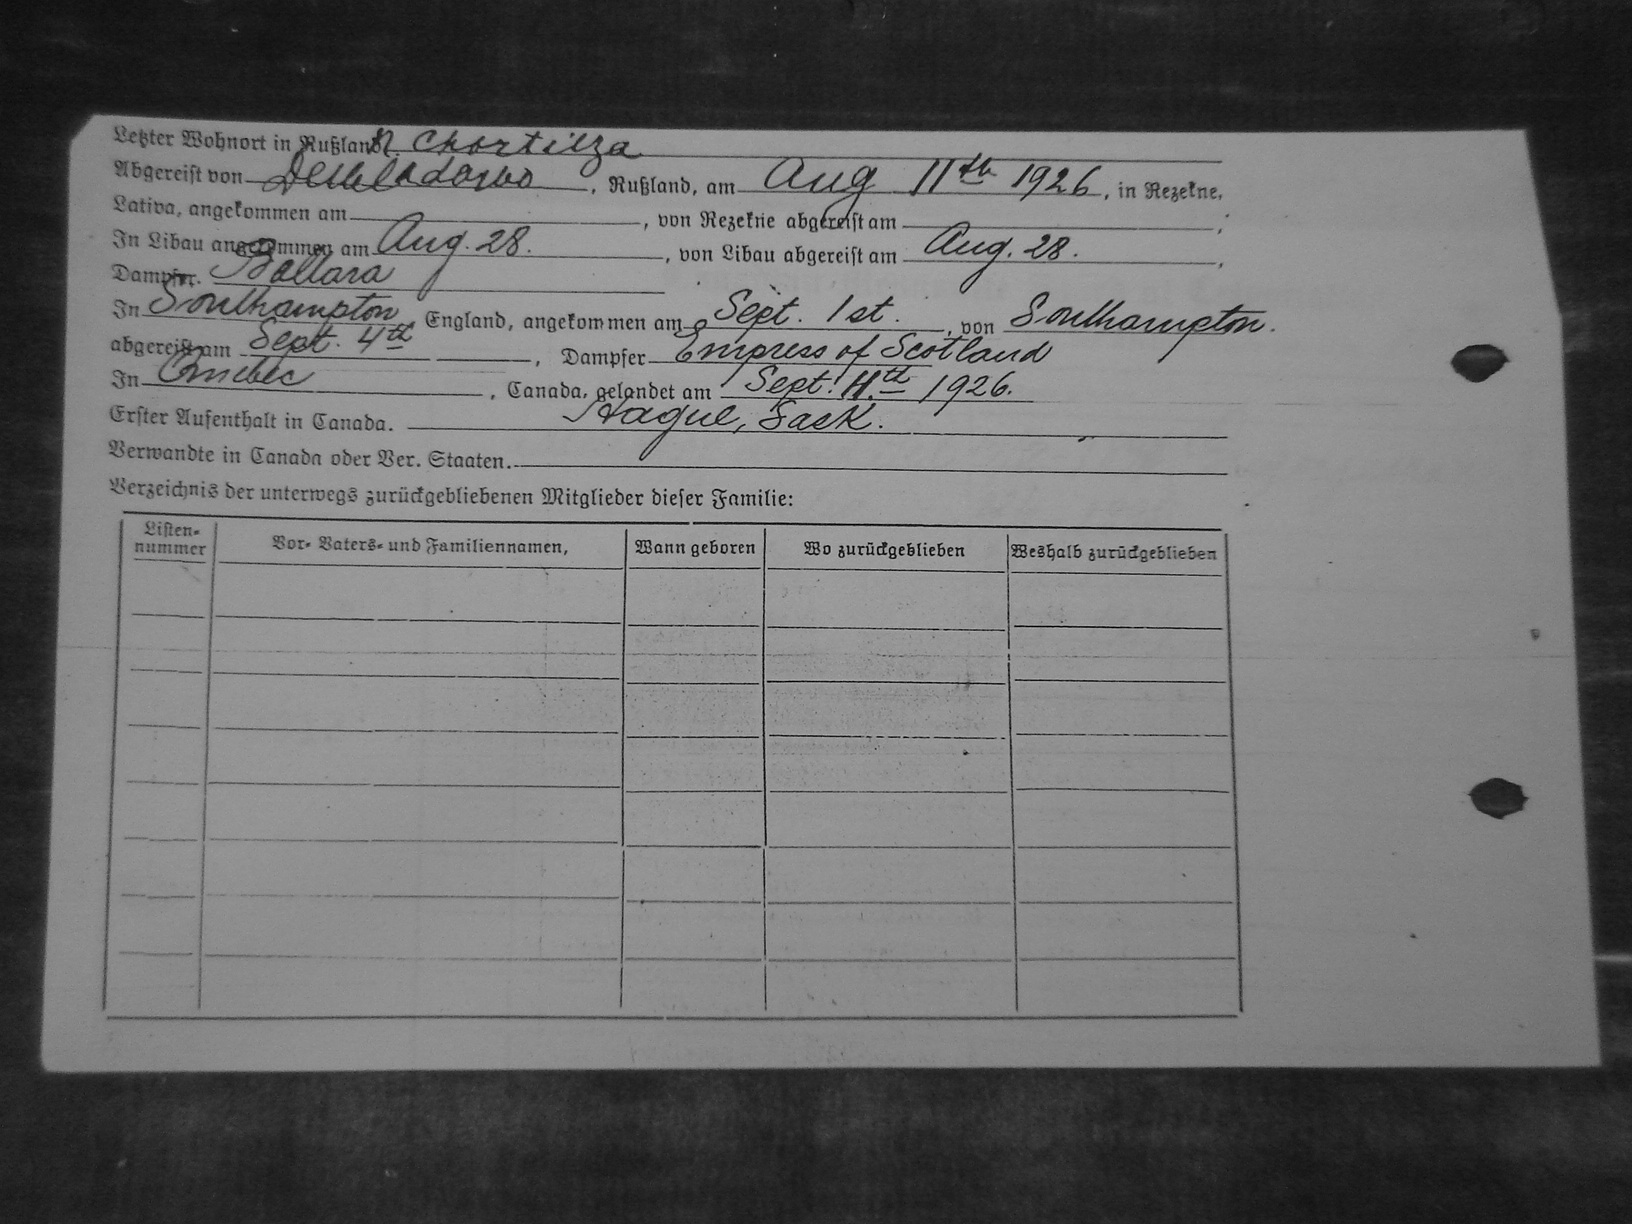 Letzter Wohnort in Rußland N. Chortitza
Abgereist von , Rußland, am Aug 11th 1926, in Rezekne,
Lativa, angekommen am , von Rezekne abgereist am ,
In Libau angekommen am Aug. 28. , von Libau abgereist am Aug. 28. ,
Dampfer. Baltara
In Southampton, England, angekommen am Sept. 1st. , von Southampton.
abgereist am Sept. 4th , Dampfer Empress of Scotland
In Quebec , Canada, gelandet am Sept. 11th 1926.
Erster Aufenthalt in Canada. Hague, Sask.
Verwandte in Canada oder Ver. Staaten.
Verzeichnis der unterwegs zurückgebliebenen Mitglieder dieser Familie:
Listen-nummer Vor- Vaters- und Familiennamen, Wann geboren Wo zurückgeblieben Weshalb zurückgeblieben